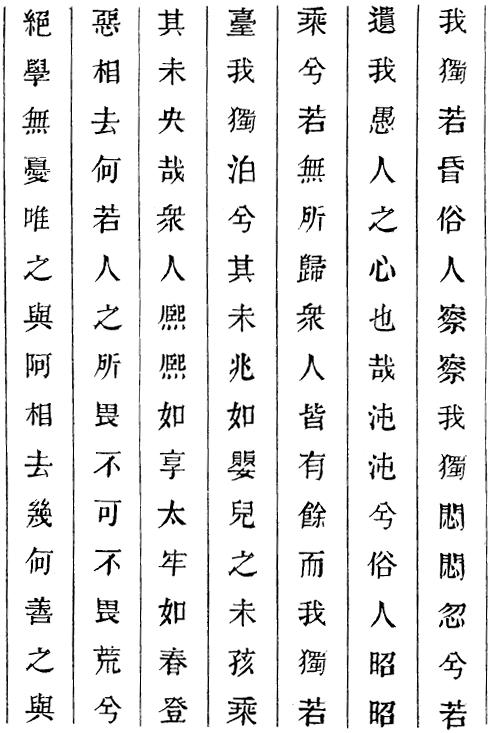 絕學無憂唯之與阿相去幾何善之與
惡相去何若人之所畏不可不畏荒兮
其未央哉衆人熙熙如享太牢如春登
臺我獨泊兮其未兆如嬰兒之未孩乘
乘兮若無所歸衆人皆有餘而我獨若
遺我愚人之心也哉沌沌兮俗人昭昭
我獨若昏俗人察察我獨悶悶忽兮若